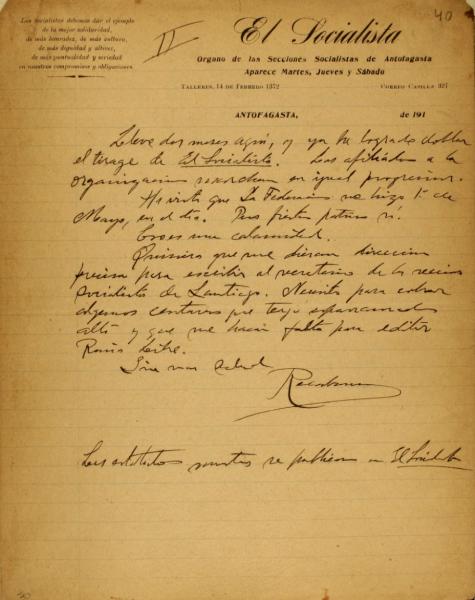 Los Socialistas debemos dar el ejemplo
de la mejor solidaridad,
de más honradez, de más cultura,
de más dignidad y altivez,
de más puntualidad y seriedad
en nuestros compromisos y obligaciones.
II
40
El Socialista
Organo de las Secciones Socialistas de Antofagasta
Aparece Martes, Jueves y Sábado
Talleres, 14 de Febrero 1372
Correo Casilla 327
ANTOFAGASTA,
de 191
Llevo dos meses aquí, y ya he logrado doblar
el tiraje de El Socialista. Los afiliados a la
organización marchan en igual progresión.
He visto que La Federación no hizo 1º de
Mayo, en el día. Para fiesta patria sí.
Eso es una calamidad.
Quisiera que me dieran dirección
precisa para escribir al secretario de la sección
de Santiago. Necesito para cobrar
algunos centavos que tengo
allá y que me hacen falta para editar
Sin mas salud
Recabarren
Los se publican en El Socialista